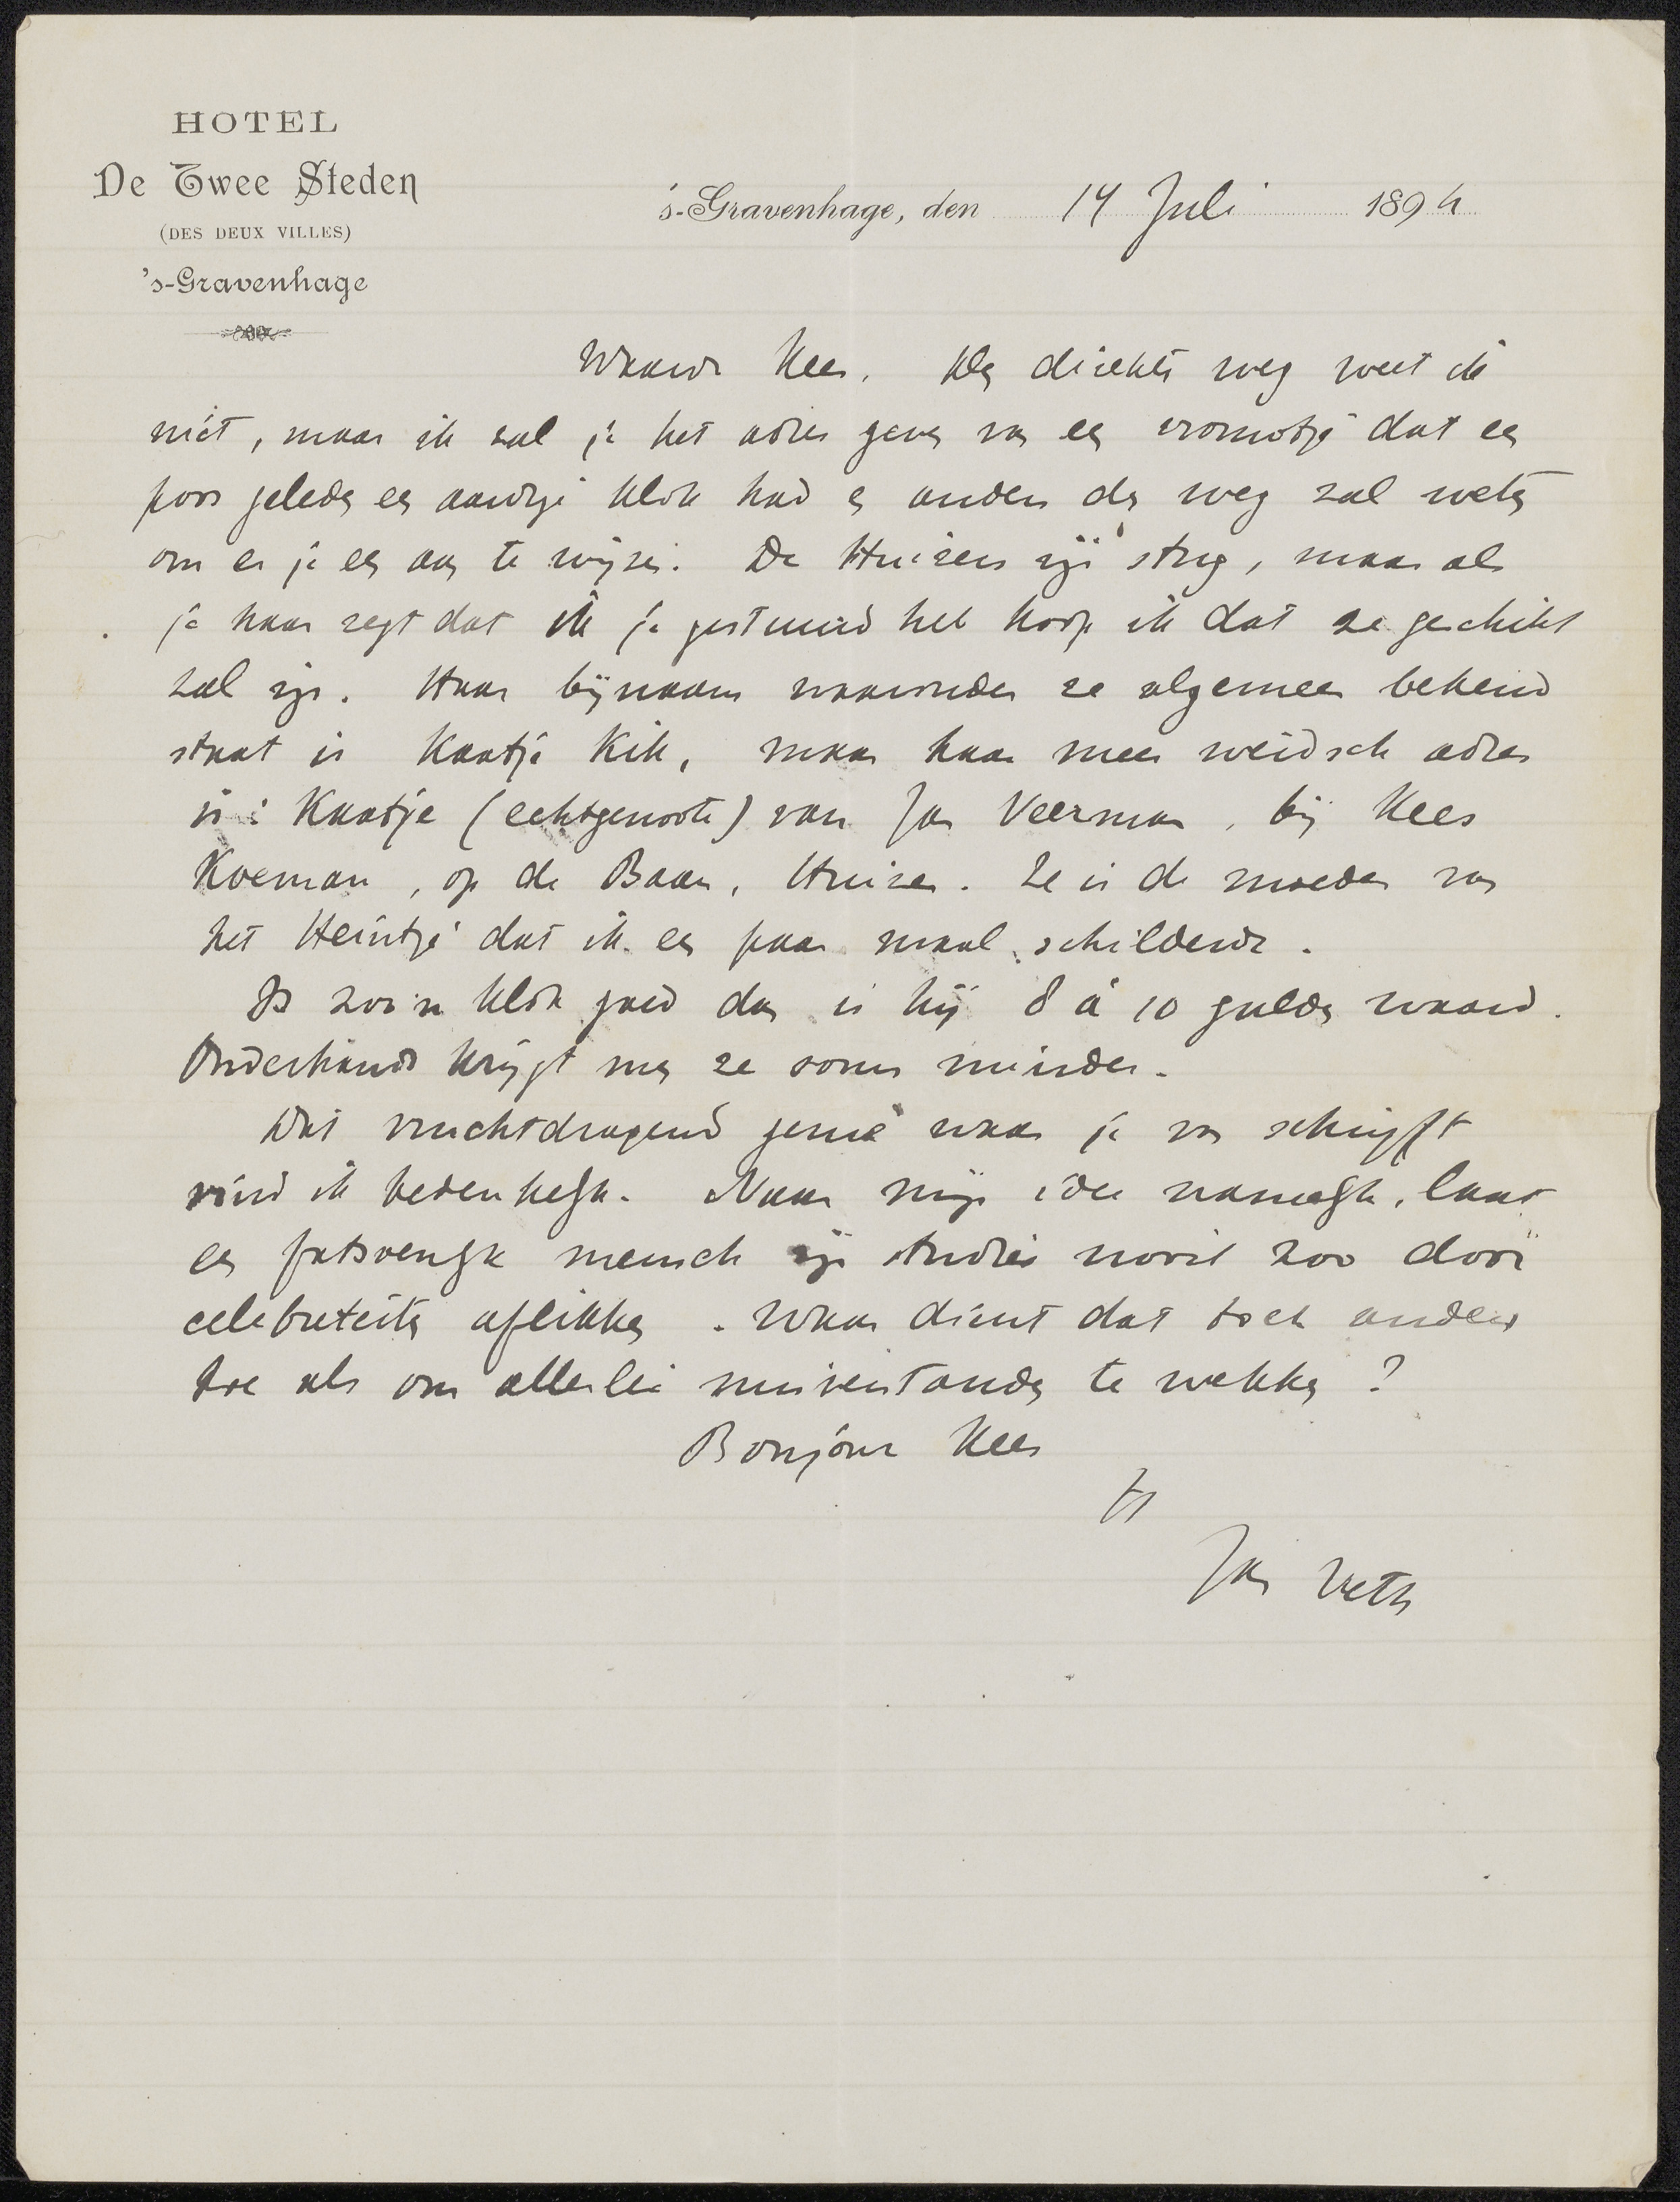 HOTEL
De Twee Steden
(DES DEUX VILLES)
's-Gravenhage
's-Gravenhage, den 14 Juli 1894
Waarde Kees. Den direkten weg weet ik
niet, maar ik zal je het adres geven van een vrouwtje dat een
poos geleden een aardige klok had en anders den weg zal weten
om er je een aan te wijzen. De Huizers zijn strug, maar als
je haar zegt dat ik je gestuurd heb hoop ik dat ze geschikt
zal zijn. Haar bijnaam waaronder ze algemeen bekend
staat is Kaatje Kik, maar haar meer weidsch adres
is: Kaatje (echtgenoote) van Jan Veerman, bij Kees
Koeman, op de Baan, Huizen. Ze is de moeder van
het Heintje dat ik een paar maal schilderde.
Is zoo'n klok goed dan is hij 8 à 10 gulden waard.
Onderhands krijgt men ze soms minder.
Dat vruchtdragend genie waar je van schrijft
vind ik bedenkelijk. Naar mijn idee namelijk, laat
een fatsoenlijk mensch zijn studies nooit zoo door
celebriteiten aflikken. Waar dient dat toch anders
toe als om allerlei misverstanden te wekken?
Bonjour Kees
Jan Veth